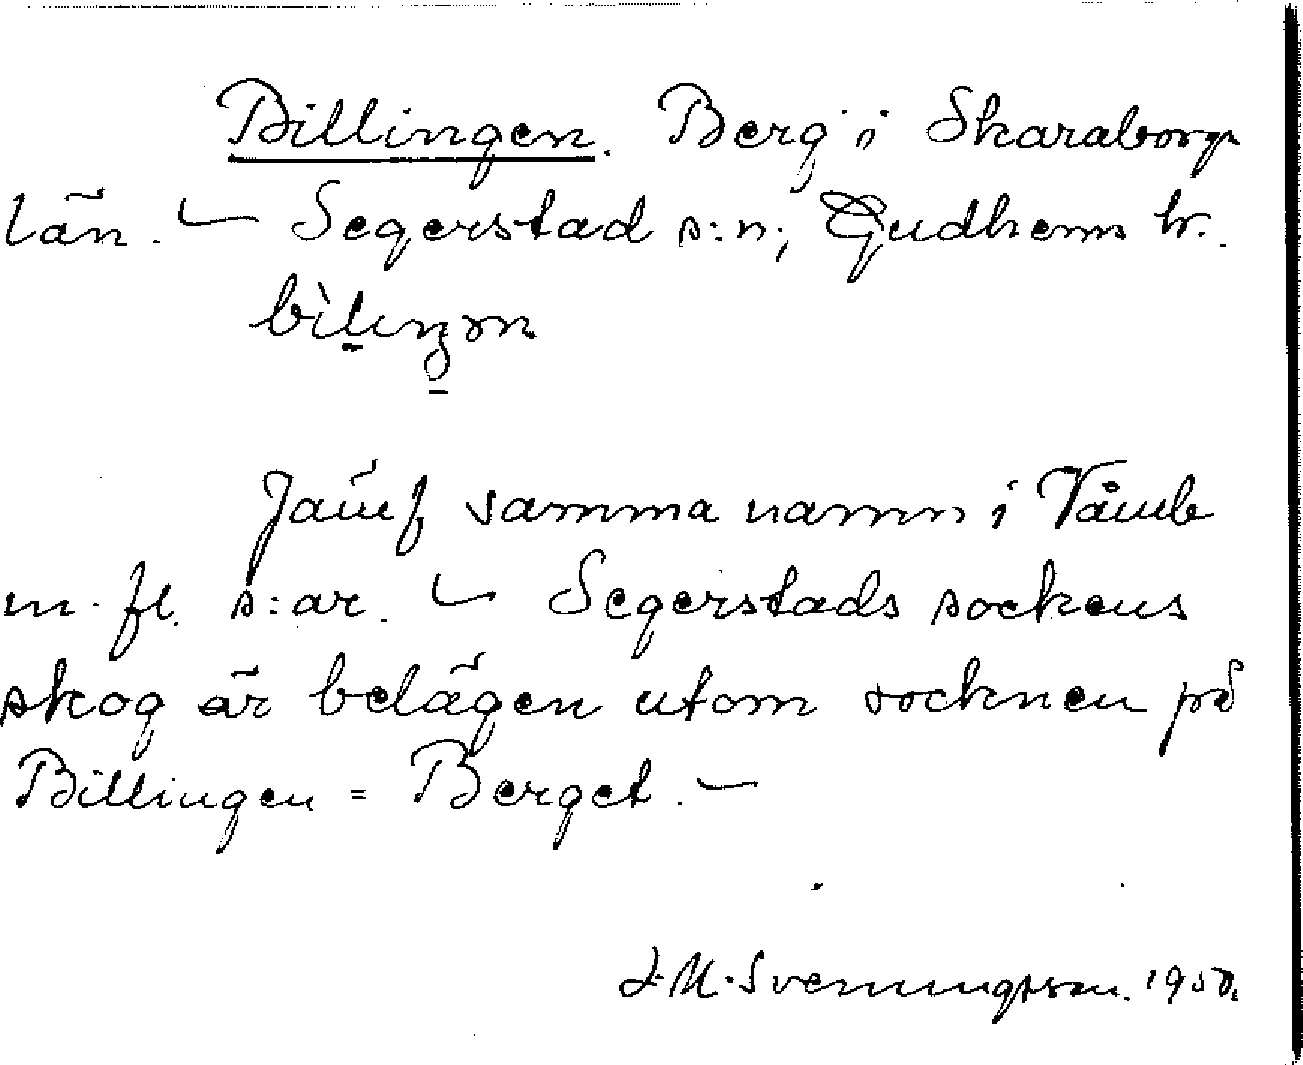 Billingen. Berg i Skaraborgs
län. — Segerstad s:n, Gudhems hr.
Jämf samma namn i Våmb
m. fl. s:ar. — Segerstads sockens
skog är belägen utom socknen på
Billingen = Berget. —
Svenningsson. 1950.